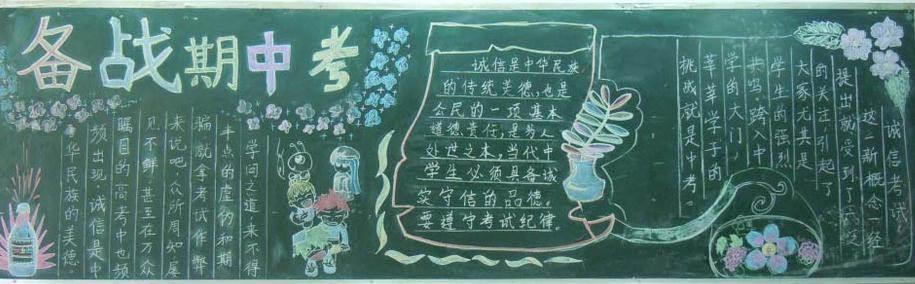 备战期中考
学问之道,来不得
半点的虚伪和期
骗,就拿考试作弊
来说吧,众所周知,屡
见不鲜,甚至在万众
瞩目的高考中也频
频出现,诚信是中
华民族的美德。
诚信是中华民族
的传统美德,也是
公民的一项基本
道德责任,是为人
处世之本,当代中
学生必须具备诚
实守信的品德。
要遵守考试纪律。
诚信考试
这一新概念一经
提出就受到了广泛
的关注,引起了
大家尤其是
学生的强烈
共鸣,跨入中
学的大门,
莘莘学子的
挑战就是中考。